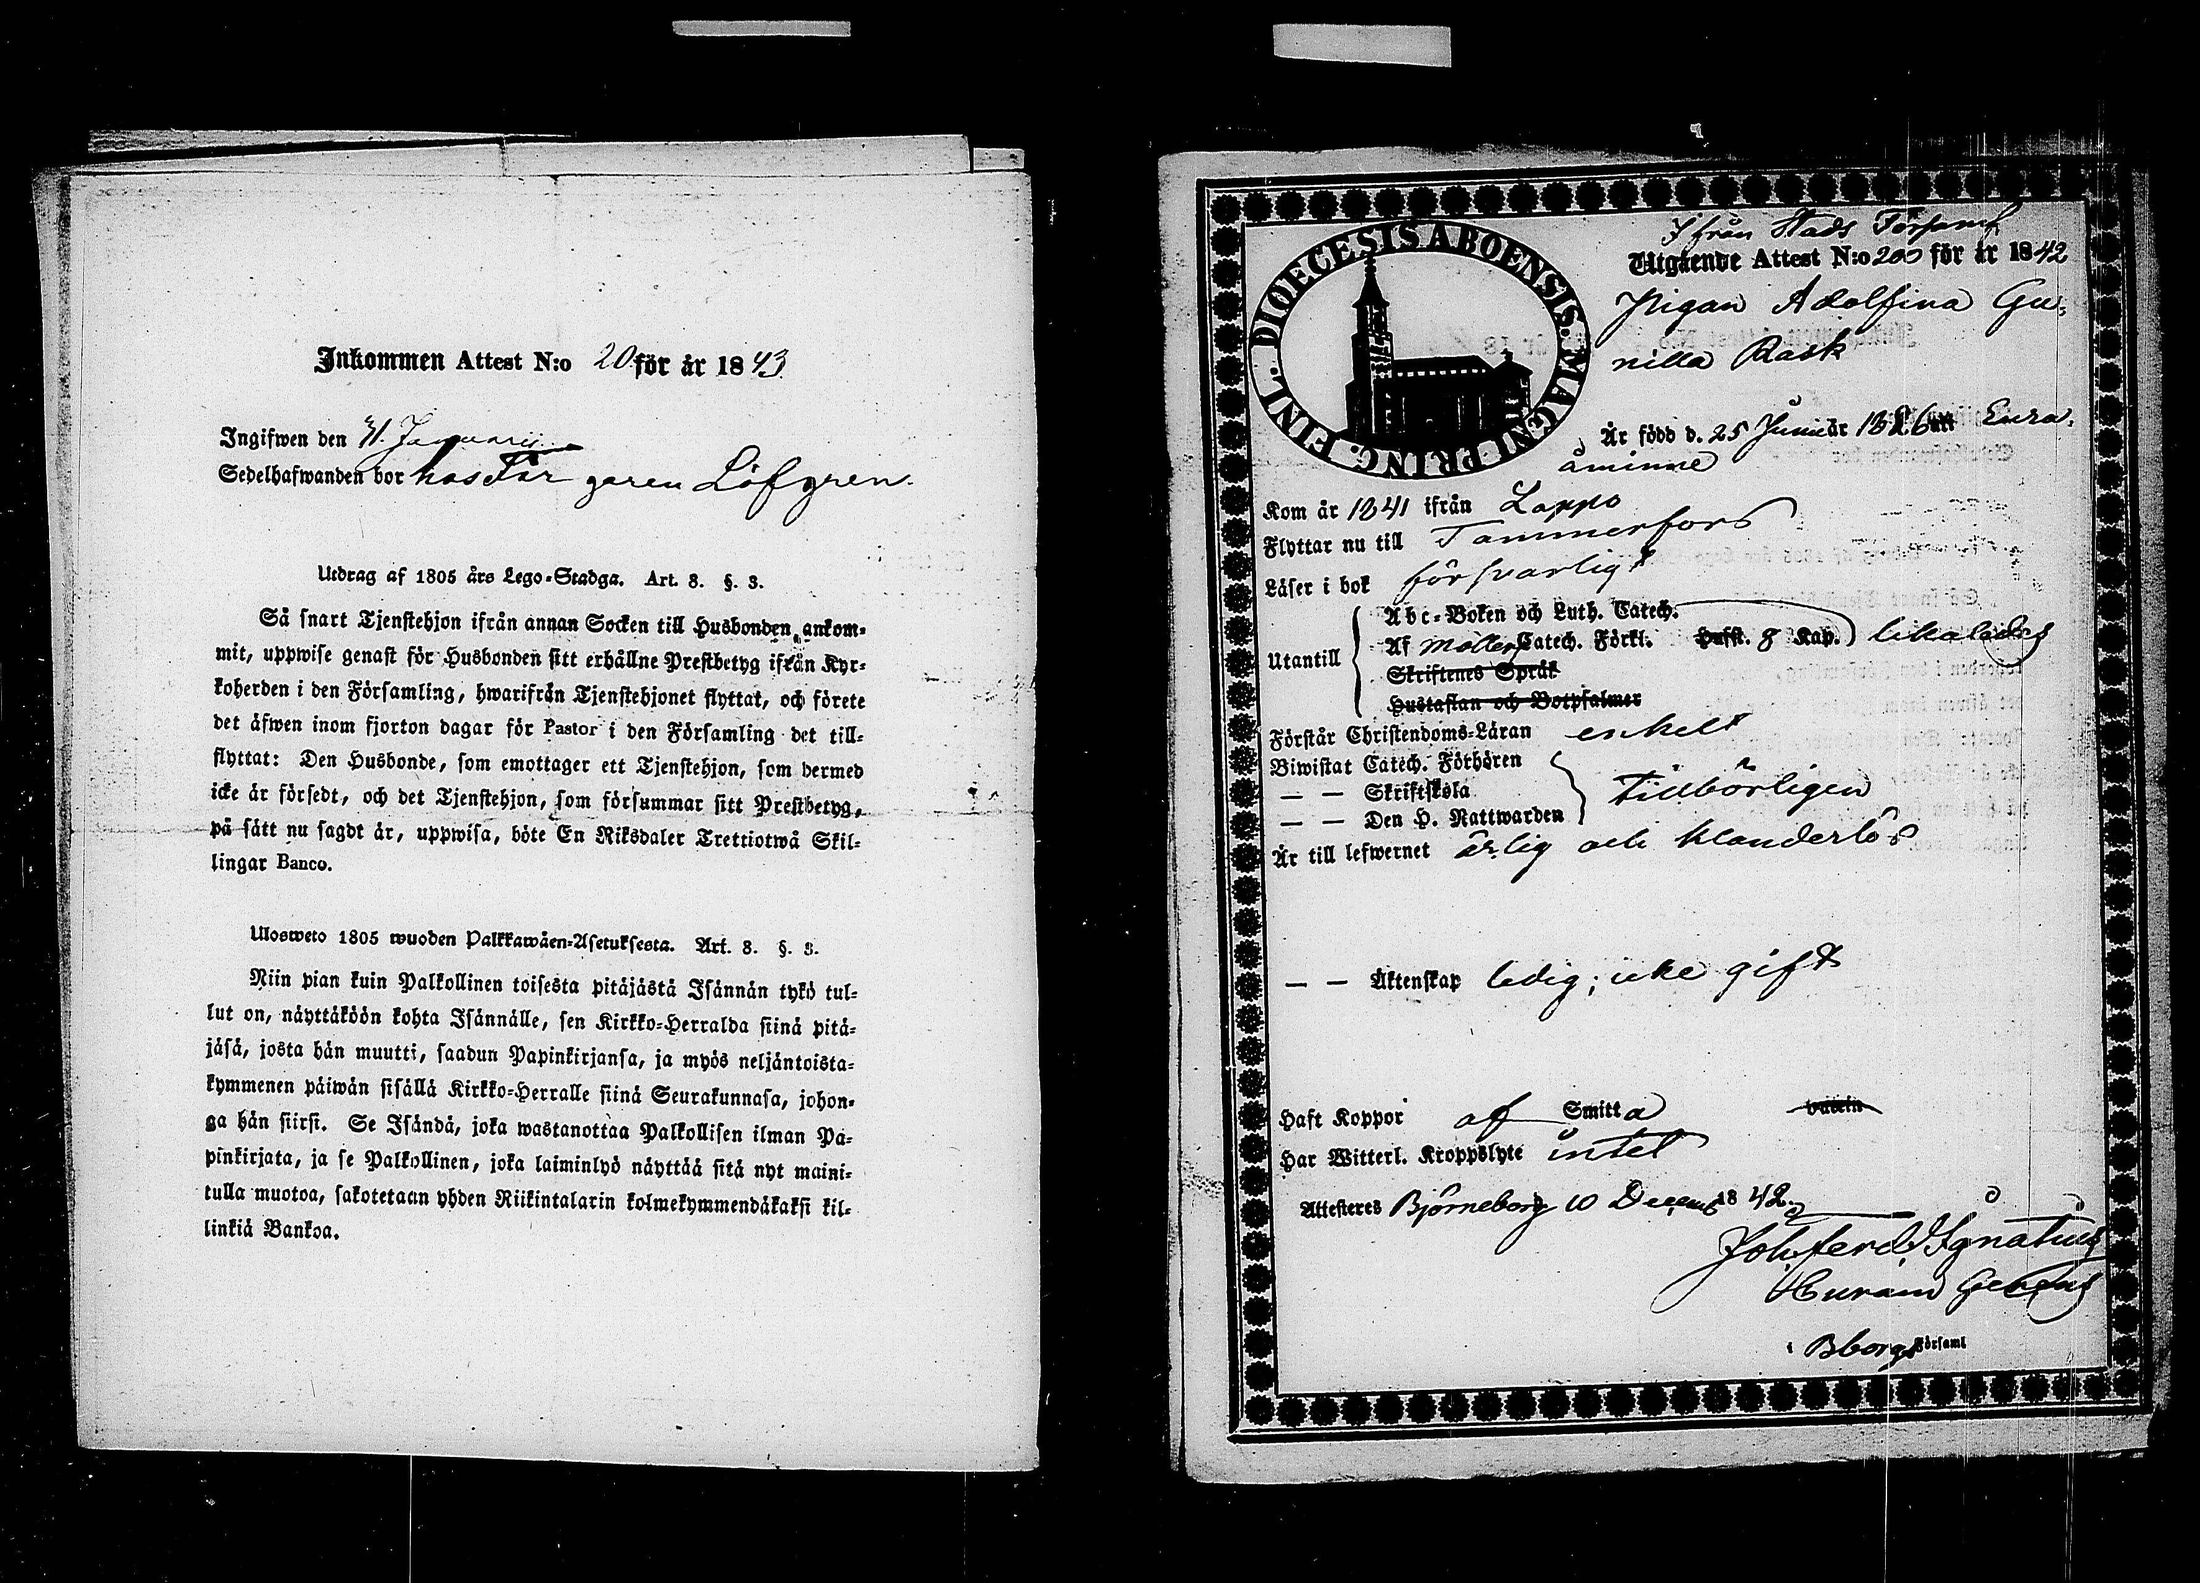 Inkommen Attest N:o 20 för år 1843
Ingifwen den 31. Januarii
Sedelhafwanden bor hos Fär garen Löfgren.
Utdrag af 1805 års Lego-Stadga. Art. 8. §. 3.
Så snart Tjenstehjon ifrån annan Socken till Husbonden ankom-
mit, uppwise genast för Husbonden sitt erhållne Prestbetyg ifrån Kyr-
koherden i den Församling, hwarifrån Tjenstehjonet flyttat, och förete
det äfwen inom fjorton dagar för Pastor i den Församling det till-
flyttat: Den Husbonde, som emottager ett Tjenstehjon, som dermed
icke är försedt, och det Tjenstehjon, som försummar sitt Prestbetyg,
på sätt nu sagdt är, uppwisa, böte En Riksdaler Trettiotwå Skil-
lingar Banco.
Ulosweto 1805 wuoden Palkkawäen-Asetuksesta. Art. 8. §. 3.
Niin pian kuin Palkollinen toisesta pitäjästä Isännän tykö tul-
lut on, näyttäköön kohta Isännälle, sen Kirkko-Herralda siinä pitä-
jäsä, josta hän muutti, saadun Papinkirjansa, ja myös neljäntoista-
kymmenen päiwän sisällä Kirkko-Herralle siinä Seurakunnasa, johon-
ga hän siirsi. Se Isändä, joka wastanottaa Palkollisen ilman Pa-
pinkirjata, ja se Palkollinen, joka laiminlyö näyttää sitä nyt maini-
tulla muotoa, sakotetaan yhden Riikintalarin kolmekymmendäkaksi kil-
linkiä Bankoa.
DIOECESIS ABOENSIS. MAGNI PRINC. FINL.
Ifrån Stads Församl
Utgående Attest N:o 200 för år 1842
Pigan Adolfina Gu-
nilla Rask
Är född d. 25 Junii år 1826 uti Eura-
åminne
Kom år 1841 ifrån Lappo
Flyttar nu till Tammerfors
Läser i bok försvarligt
Abc-Boken och Luth. Catech.
Utantill Af Möllers Catech. Förkl. Husst. 8 Kap. likaledes
Skriftenes Språk
Hustaflan och Botpsalmer
Förstår Christendoms-Läran enkelt
Biwistat Catech. Förhören
— — Skriftskola tillbörligen
— — Den H. Nattwarden
Är till lefwernet ärlig och klanderlös
— — Äktenskap ledig; icke gift
Haft Koppor af Smitta vaccin
Har Witterl. Kroppslyte intet
Attesteras Björneborg 10 Decemb 1842.
Joh. Ferd. Ignatius
i Bborgs Församl